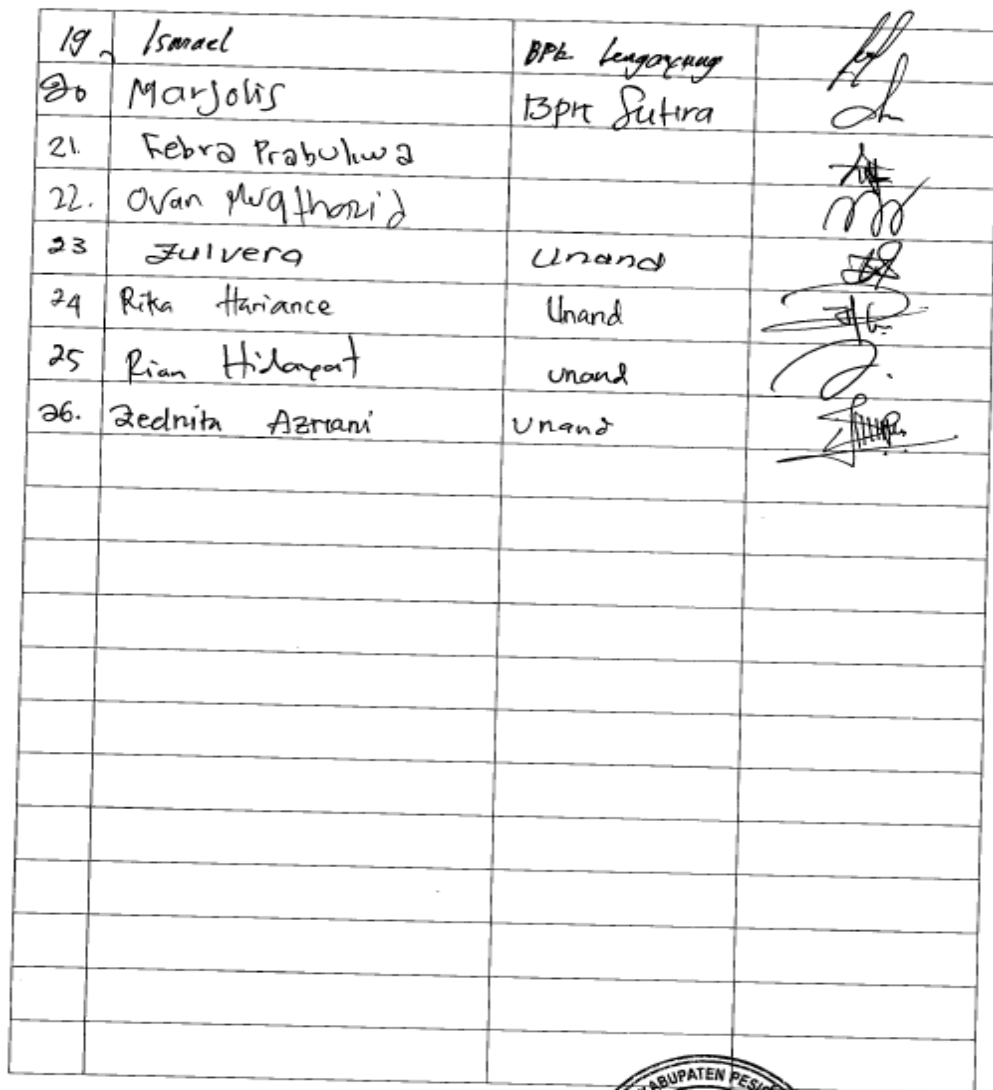 19. Ismael BPK Lengayang
20 Marjolis BPK Sutera
21. Febra Prabuliwa
22. Ovan
23 Zulvera Unand
24 Rika Hariance Unand
25 Rian Hidayat unand
26. Zednita Azriani Unand
KABUPATEN